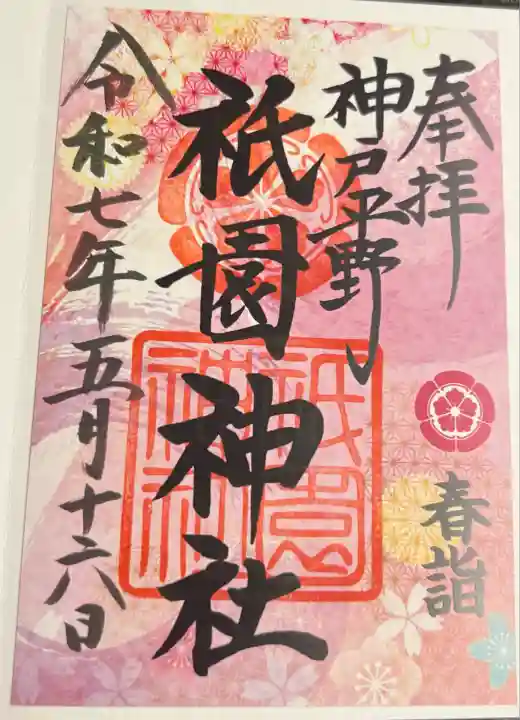 奉拝
春詣
神戸平野
祇園神社
祇園
神社
令和七年五月十六日